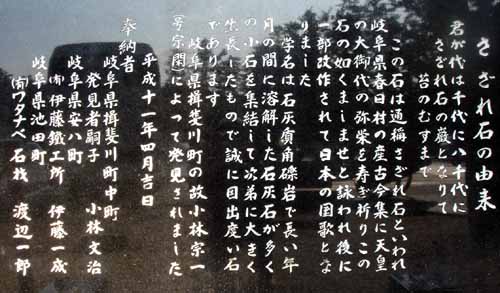 さざれ石の由来
君が代は千代に八千代に
さざれ石の巌となりて
苔のむすまで
この石は通称さざれ石といわれ
岐阜県春日村の産古今集に天皇
の大御代の弥栄を寿ぎ祈りこの
石の如くましませと詠われ後に
一部改作されて日本の国歌とな
りました
学名は石灰質角礫岩で長い年
月の間に溶解した石灰石が多く
の小石を集結して次第に大きく
生長したもので誠に目出度い石
であります
岐阜県揖斐川町の故小林宗一
(号宗閑)によって発見されました
平成十一年四月吉日
奉納者
岐阜県揖斐川町中町
発見者嗣子 小林文治
岐阜県安八町
㈲伊藤鐵工所 伊藤一成
岐阜県池田町
㈲ワタナベ石材 渡辺一郎